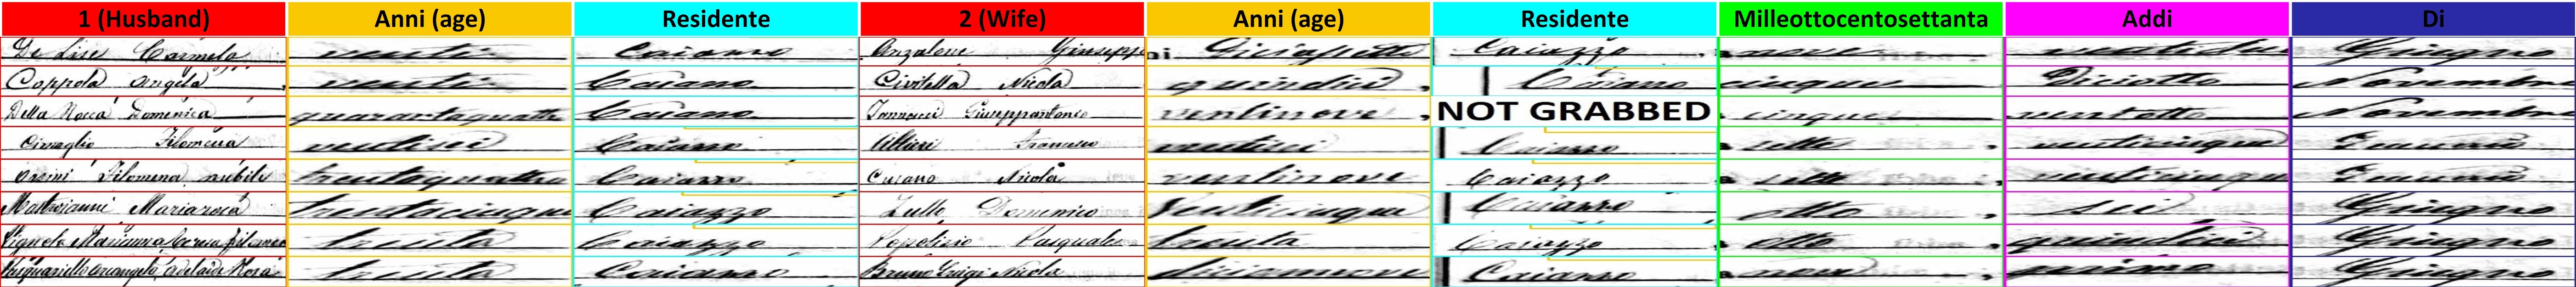 1 (Husband) Anni (age) Residente 2 (Wife) Anni (age) Residente Milleottocentosettanta Addi Di
De Lise Carmela venti Caiazzo Anzalone Giuseppe Caiazzo nove Giugno
Coppola Angela venti Caiazzo Civitella Nicola quindici Caiazzo cinque Diciotto Novembre
Della Rocca Domenica quarantaquattro Caiazzo Iannucci Giuseppantonio ventinove NOT GRABBED cinque ventotto Novembre
Filomena ventisei Caiazzo Caiazzo sette venticinque Gennaio
Orsini Filomena nubile trentaquattro Caiazzo Cusano Nicola ventinove Caiazzo sette venticinque Gennaio
Mastroianni Mariarosa trentacinque Caiazzo Zullo Domenico Venticinque Caiazzo otto sei Giugno
Marianna Teresa Filomena trenta Caiazzo Popolizio Pasquale trenta Caiazzo otto quindici Giugno
Pasquariello Arcangela Adelaide Rosa trenta Caiazzo Bruno Luigi Nicola diciannove Caiazzo nove primo Giugno